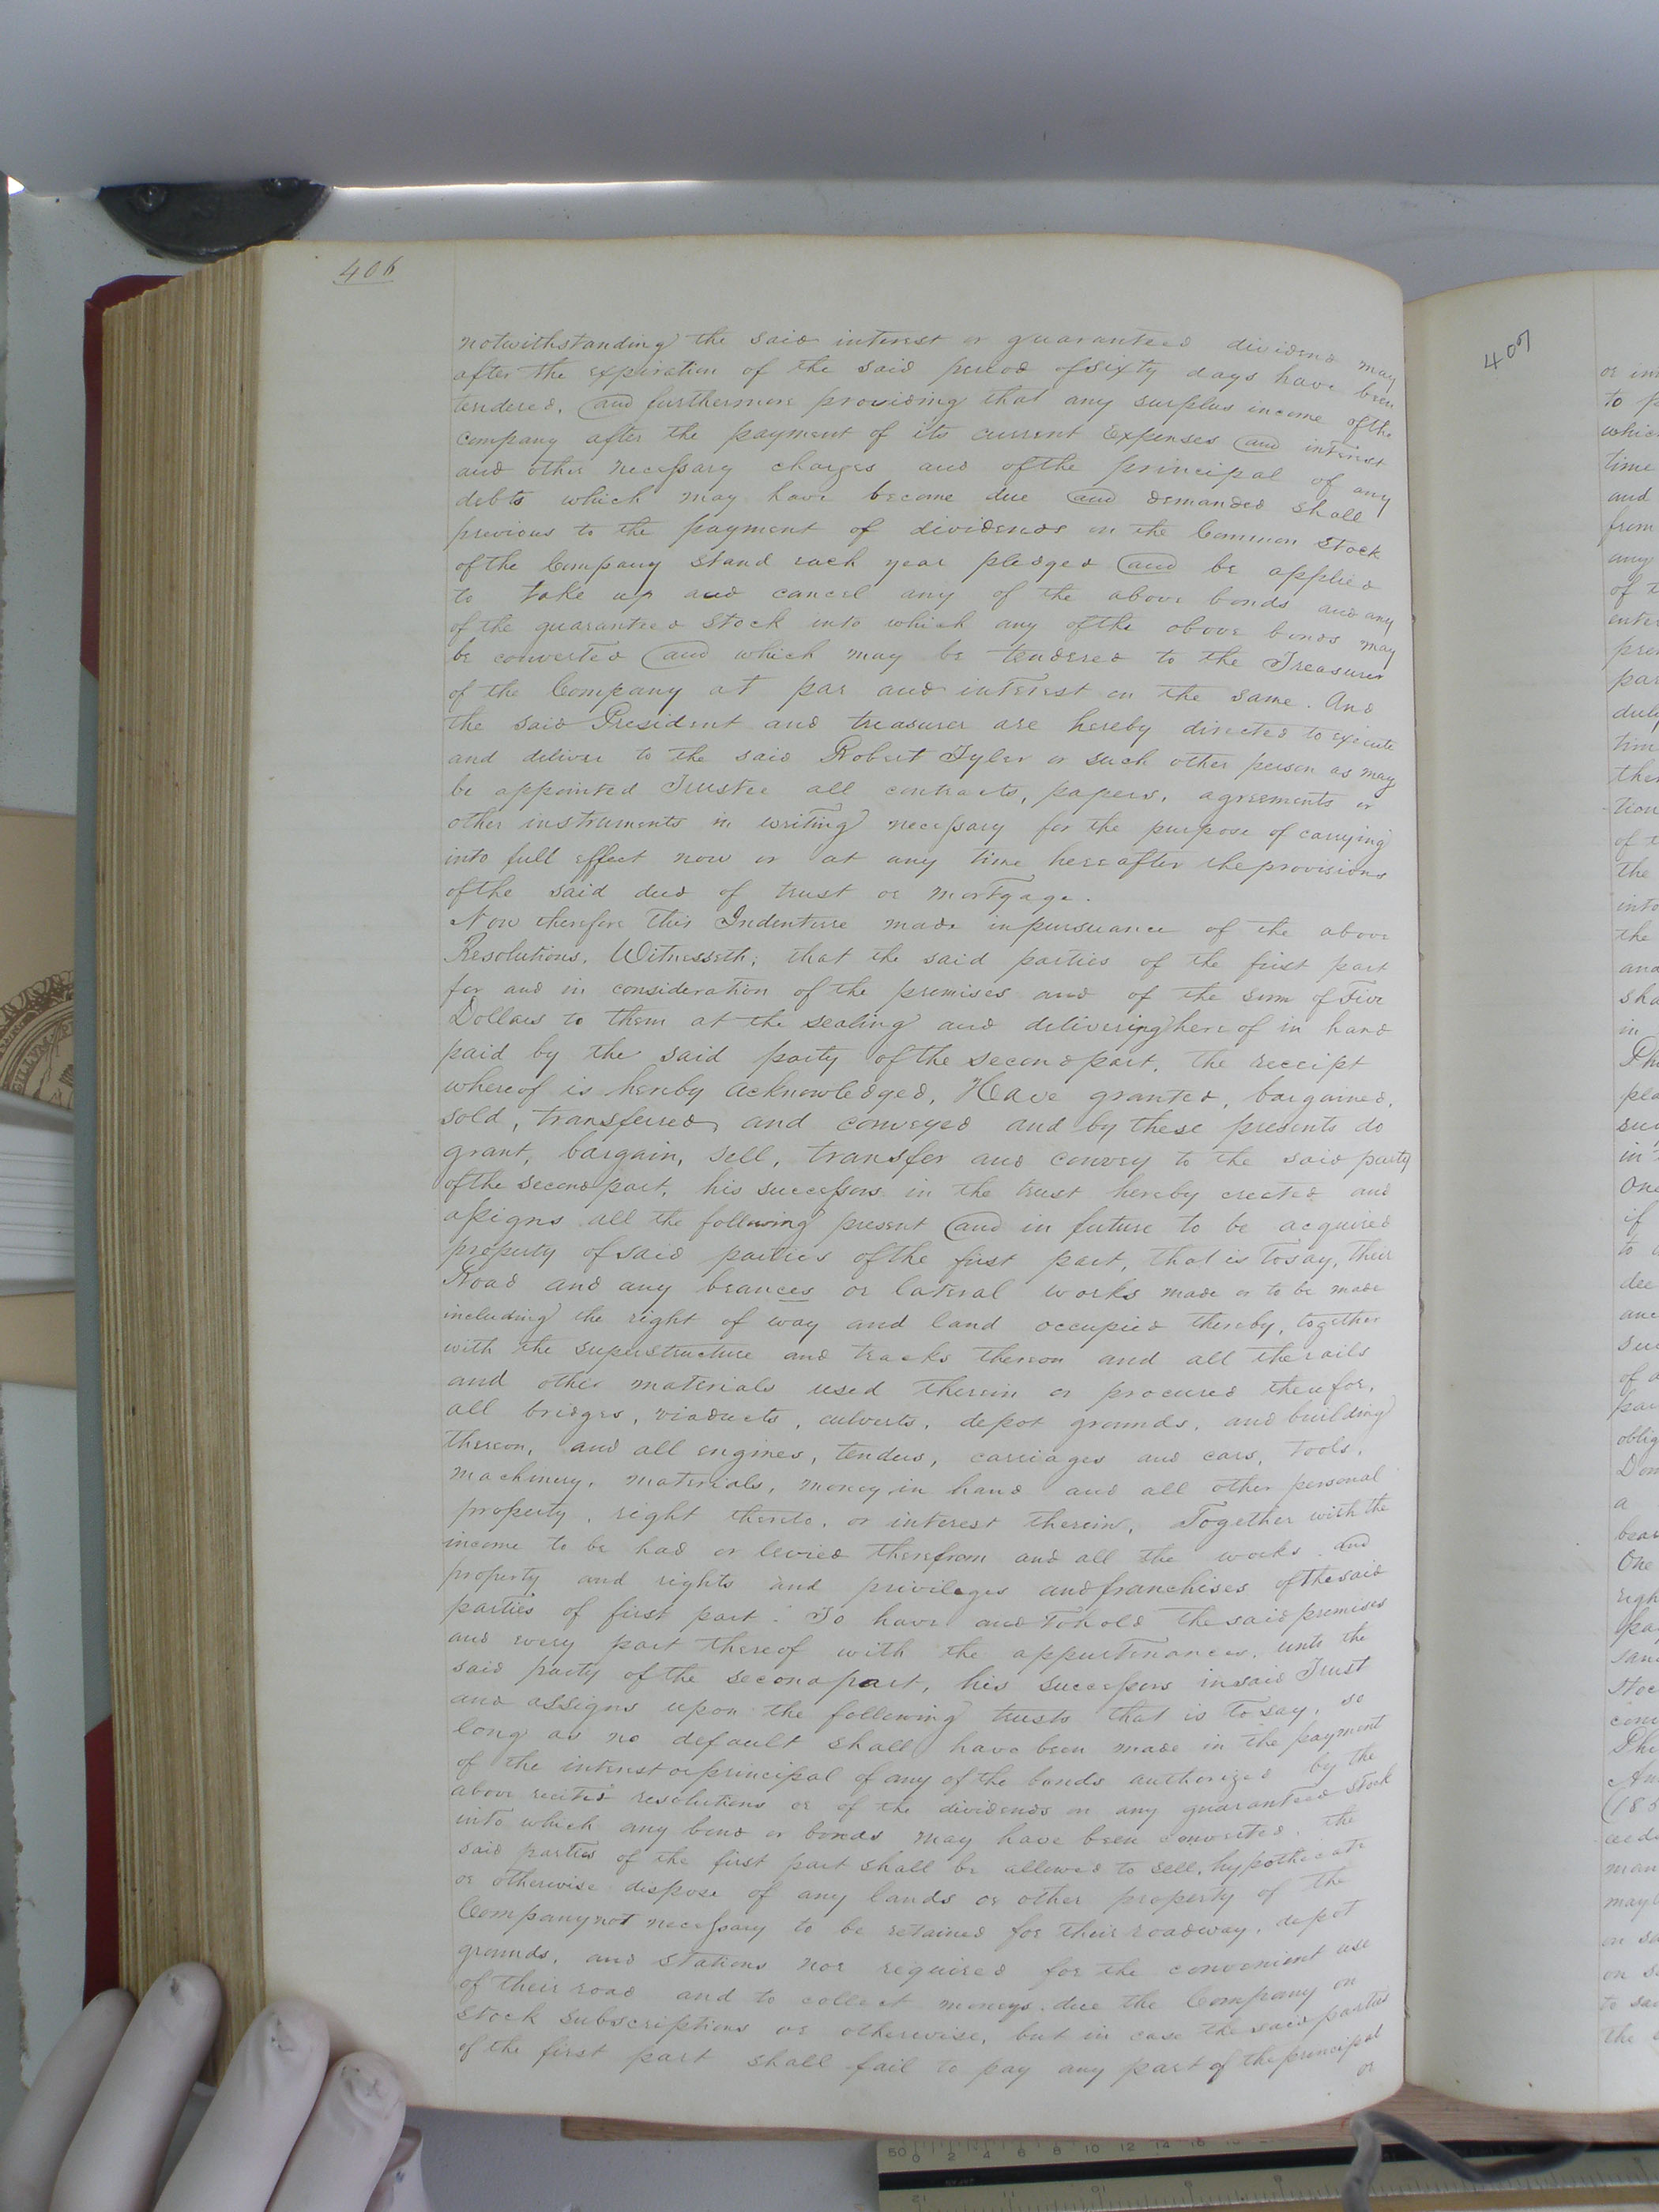 406
notwithstanding the said interest or guaranteed dividend may
after the expiration of the said period of sixty days have been
tendered, and furthermore providing that any surplus income of the
Company after the payment of its current Expenses and interest
and other necessary charges and of the principal of any
debts which may have become due and demanded shall
previous to the payment of dividends on the Common Stock
of the Company stand each year pledged and be applied
to take up and cancel any of the above bonds and any
of the guaranteed Stock into which any of the above bonds may
be converted and which may be tendered to the Treasurer
of the Company at par and interest on the same. And
the said President and treasurer are hereby directed to execute
and deliver to the said Robert Tyler or such other person as may
be appointed Trustee all contracts, papers, agreements or
other instruments in writing necessary for the purpose of carrying
into full effect now or at any time hereafter the provisions
of the said deed of trust or mortgage.
Now therefore this Indenture made in pursuance of the above
Resolutions, Witnesseth; that the said parties of the first part
for and in consideration of the premises and of the sum of Five
Dollars to them at the sealing and delivering hereof in hand
paid by the said party of the second part, the receipt
whereof is hereby acknowledged, Have granted, bargained,
sold, transferred, and conveyed and by these presents do
grant, bargain, sell, transfer and convey to the said party
of the second part, his successors in the trust hereby created and
assigns all the following present and in future to be acquired
property of said parties of the first part, that is to say, their
Road and any brances or lateral works made or to be made
including the right of way and land occupied thereby, together
with the superstructure and tracks thereon and all the rails
and other materials used therein or procured therefor,
all bridges, viaducts, culverts, depot grounds, and building
thereon, and all engines, tenders, carriages and cars, tools,
machinery, materials, money in hand and all other personal
property, right thereto, or interest therein, Together with the
income to be had or levied therefrom and all the works and
property and rights and privileges and franchises of the said
parties of first part. To have and to hold the said premises
and every part thereof with the appurtinances, unto the
said party of the second part, his successors in said Trust
and assigns upon the following trusts that is to say, so
long as no default shall have been made in the payment
of the interest or principal of any of the bonds authorized by the
above recited resolutions or of the dividends on any guaranteed stock
into which any bond or bonds may have been converted, the
said parties of the first part shall be allowed to sell, hypothecate
or otherwise dispose of any lands or other property of the
Company not necessary to be retained for their roadway, depot
grounds, and stations nor required for the convenient use
of their road and to collect moneys due the Company on
Stock subscriptions or otherwise, but in case the said parties
of the first part shall fail to pay any part of the principal
or
407
or
to
which
time
and
from
any
of
the
into
the
and
sha
in
One
if
to
of a
a
One
on
on
to
the
50 0 2 4 6 8 10 12 14